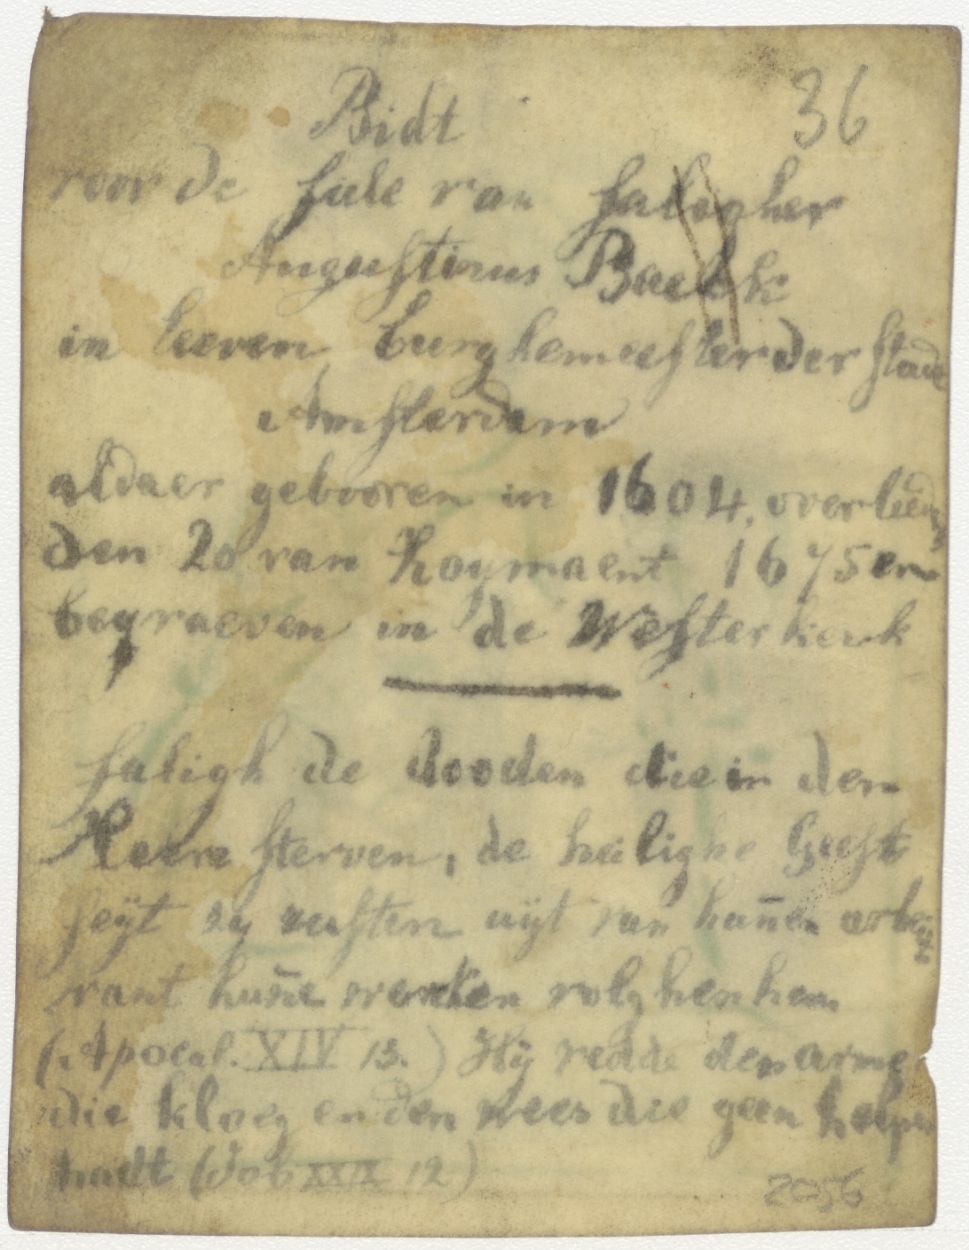 Bidt 36
voor de siele van saligher
Augustinus Baelk
in leeven burghemeester der stadt
Amsterdam
aldaer gebooren in 1604, overleeden
den 20 van Hoymaent 1675 en
begraeven in de Westerkerk
saligh de dooden die in den
Heere sterven, de heilighe Geest
seÿt sy rusten uijt van hun̄en arbeit
want hun̄e werken volghen hen
(Apocal. XIV 13.) Hij redde den arme
die kloeg en den wees die geen helper
hadt (Job XXIX 12)
2056